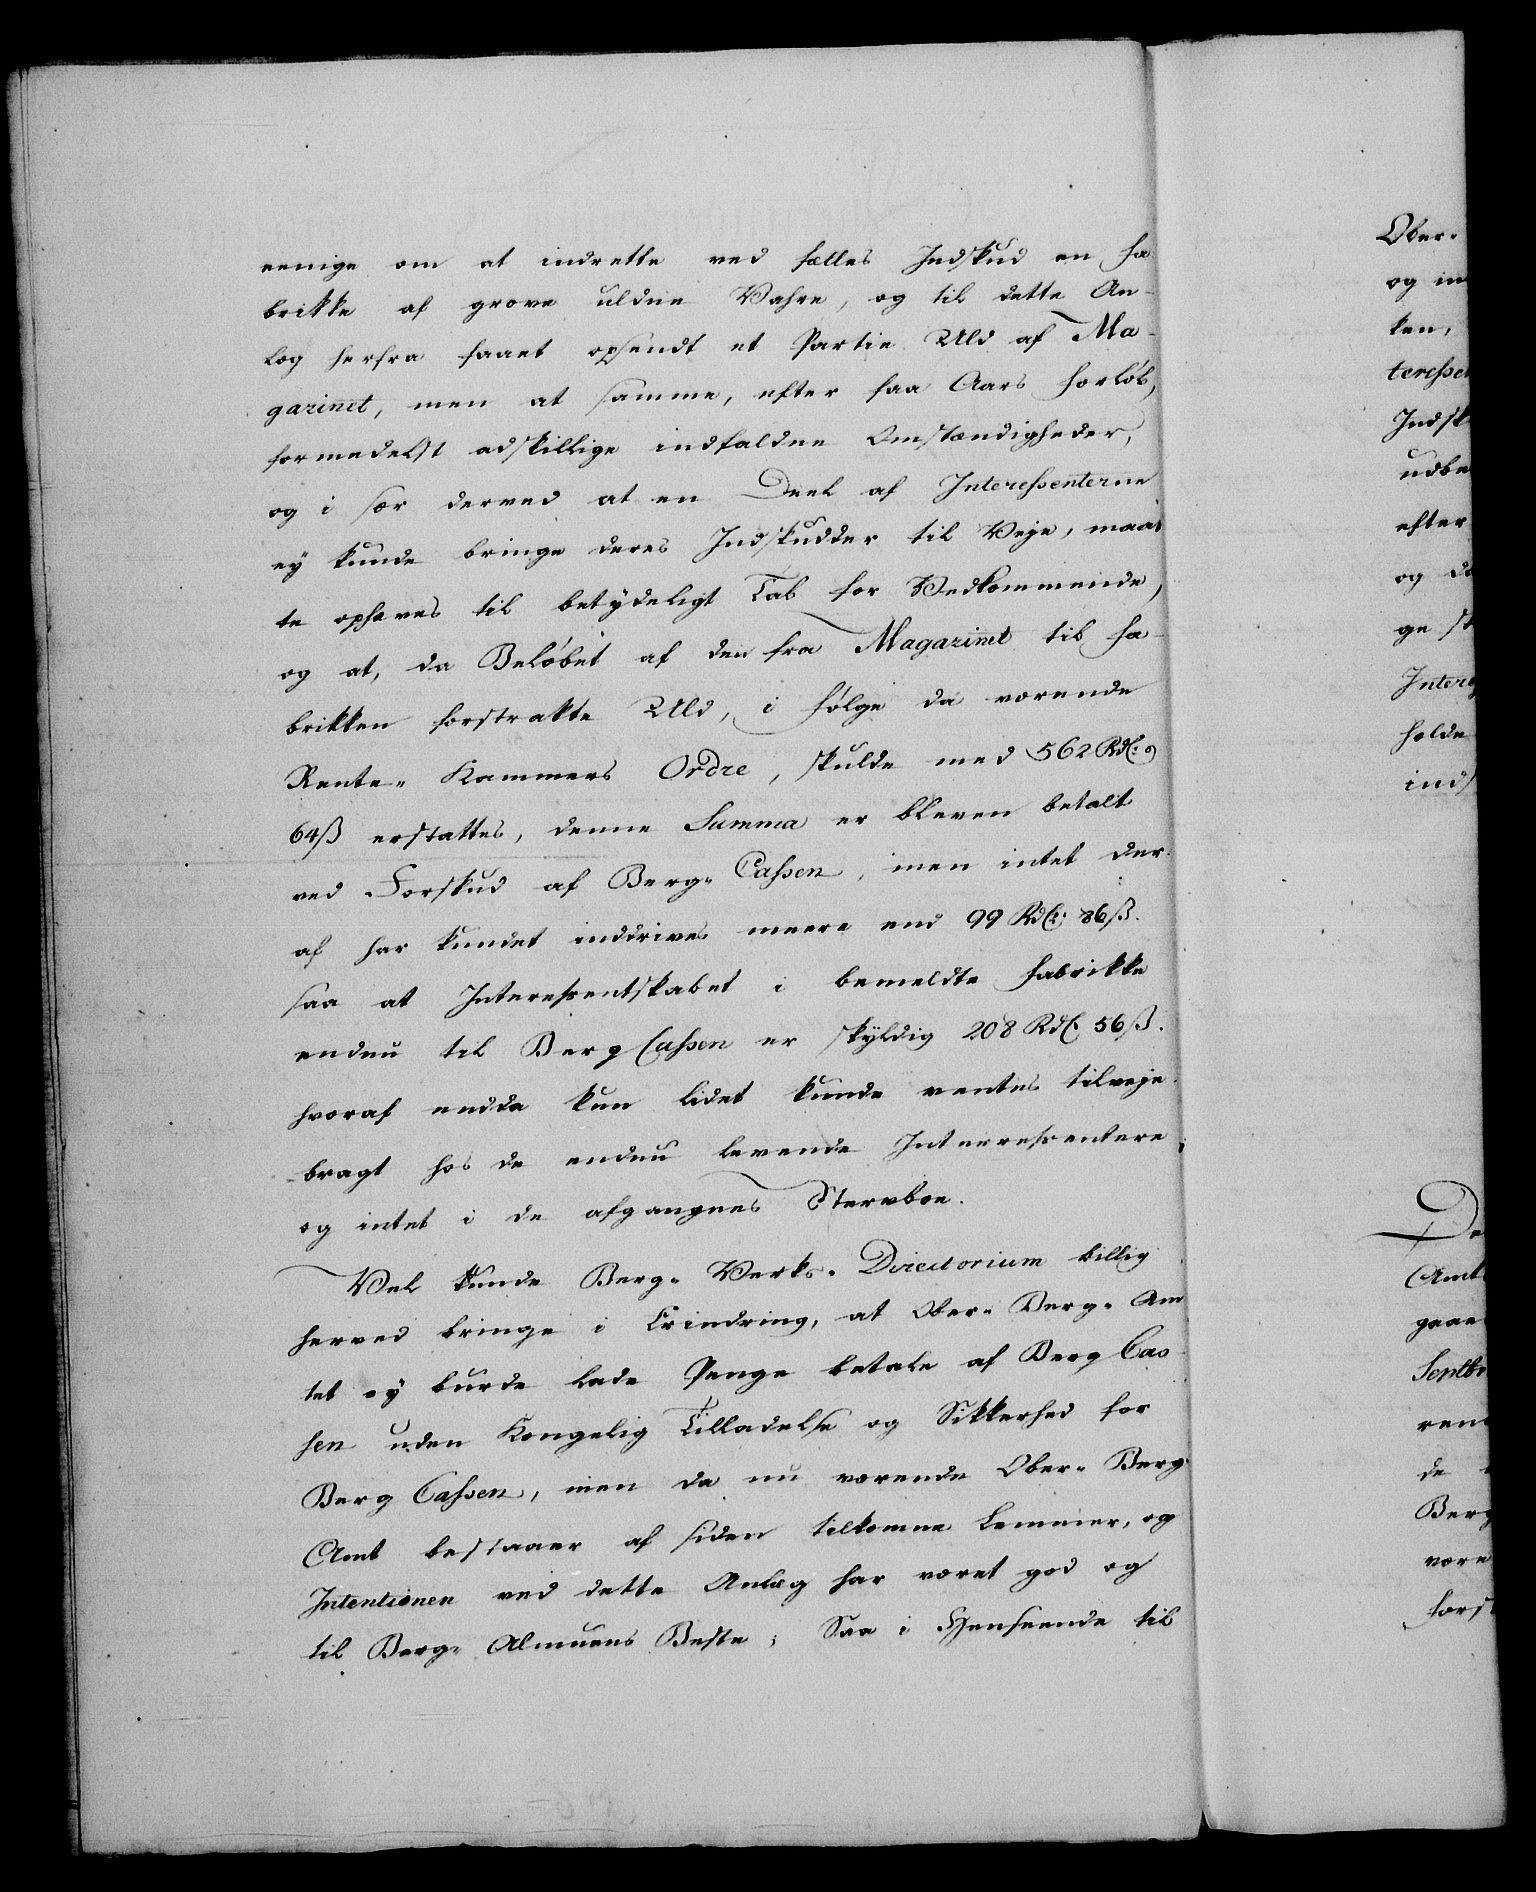 eenige om at indrette ved fælles Indskud en Fa
brikke af grove uldne Vahre, og til dette An-
læg herfra faaet opsendt et Partie Uld af Ma-
gazinet, men at samme, efter faa Aars Forløb,
formedelst adskillige indfaldne Omstændigheder,
og i sær derved at en Deel af Interessenterne
ey kunde bringe deres Indskudder til Veje, maat
te ophæves til betydeligt Tab for Vedkommende,
og at, da Beløbet af den fra Magazinet til Fa-
brikken forstrakte Uld, i Følge da værende
Rente- Kammers Ordre, skulde med 562 Rdl: og
64ß erstattes, denne Summa er bleven betalt
ved Forskud af Berg- Cassen, men intet der-
af har kundet inddrives meere end 99 Rdl: 86ß.
saa at Interessentskabet i bemeldte Fabrikke
endnu til Berg Cassen er skyldig 208 Rdl. 56ß.
hvoraf endda kun lidet kunde ventes tilveje-
bragt hos de endnu levende Interressentere,
og intet i de afgangnes Stervboe.
Vel kunde Berg- Verks- Directorium billig
herved bringe i Erindring, at Ober- Berg- Am
tet ey burde lade Penge betale af Berg Cas
sen uden Kongelig Tilladelse og Sikkerhed for
Berg Cassen, men da nu værende Ober- Berg-
Amt bestaaer af siden tilkomne Lemmer, og
Intentionen ved dette Anlæg har været god og
til Berg- Almuens Beste; Saa i Henseende til
Ober-
og in
ken,
teresse
Indsk
udbe
efter
og da
ge st
Interes
holde
inds
De
Amt
gaae
Septb
rend
de
Berg
være
forst